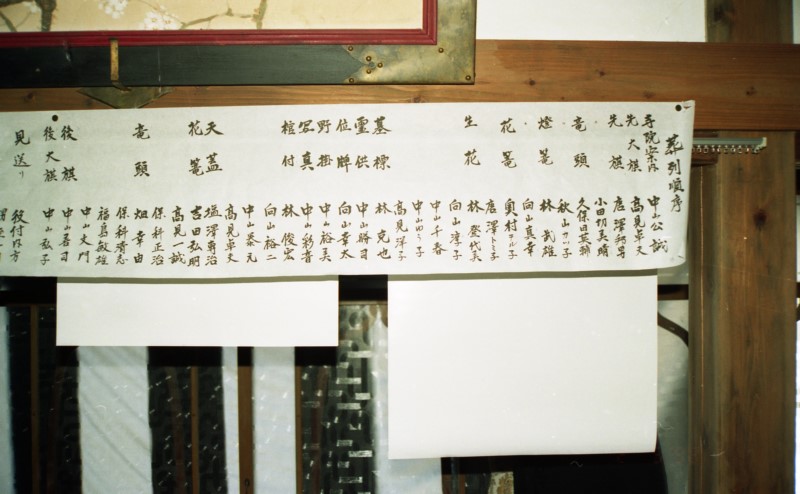 葬列順序
寺院案内 中山公誠
先大旗 高見草文
先旗 唐澤邦昇
小田切美晴
竜頭 久保田英輔
秋山サハ子
燈篭 林武雄
向山真幸
花篭 奥村ツル子
唐澤トミ子
生花 林登代美
向山淳子
中山千春
中山ゆう子
高見洋子
墓標 林克也
霊供 中山勝司
位牌 向山幸太
野掛 中山裕美
写真 中山彩香
棺付 林俊宏
向山裕二
中山泰元
天蓋 高見草文
花篭 塩澤勇治
吉田弘明
高見一誠
保科正治
竜頭 畑幸由
保科清志
福島敏雄
中山文門
後旗 中山吾司
後大旗 中山弘子
見送り 役付外方